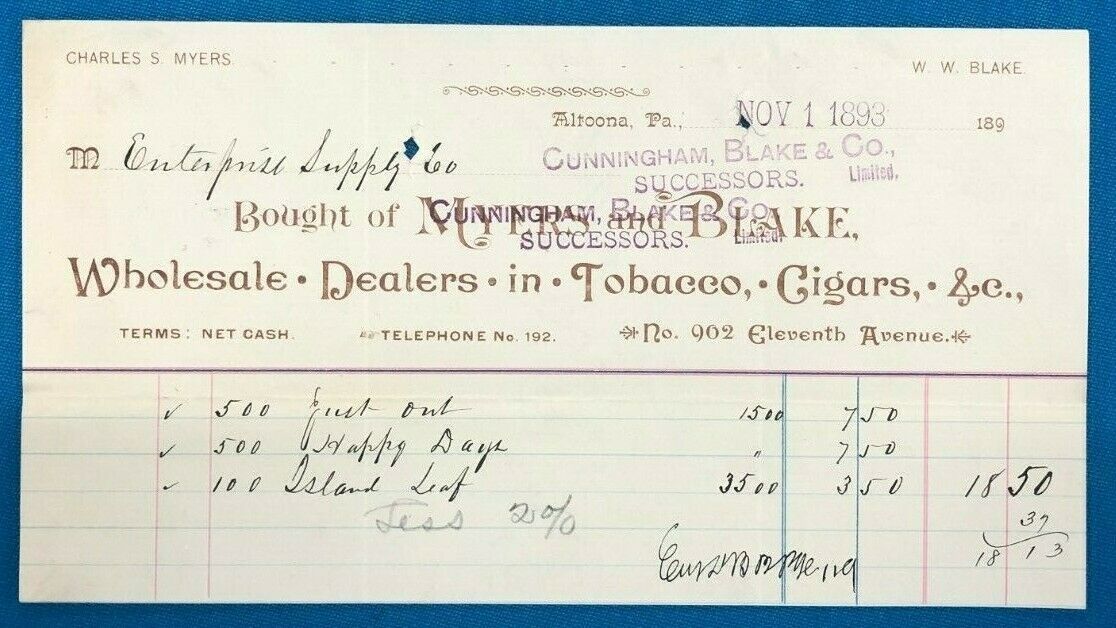 CHARLES S. MYERS.
W. W. BLAKE.
Altoona, Pa., NOV 1 1893 189
M Enterprise Supply Co
CUNNINGHAM, BLAKE & CO.,
SUCCESSORS. Limited.
Bought of MYERS and BLAKE,
CUNNINGHAM, BLAKE & CO.
SUCCESSORS. Limited.
Wholesale · Dealers · in · Tobacco, · Cigars, · &c.,
TERMS: NET CASH.
TELEPHONE No. 192.
No. 902 Eleventh Avenue.
✓ 500 Just Out 1500 7 50
✓ 500 Happy Days " 7 50
✓ 100 Island Leaf 3500 3 50 18 50
Less 2% 37
18 13